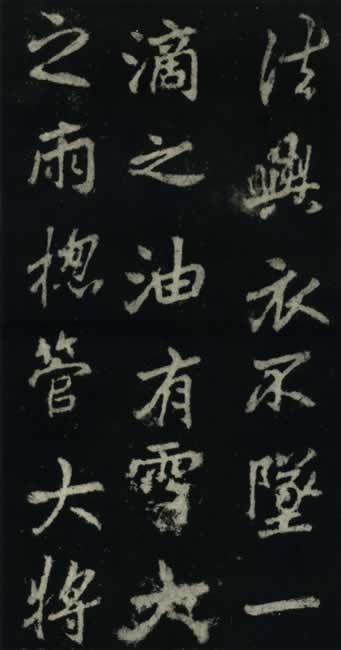 法與衣不墜一
滴之油有雪火
之雨揔管大將